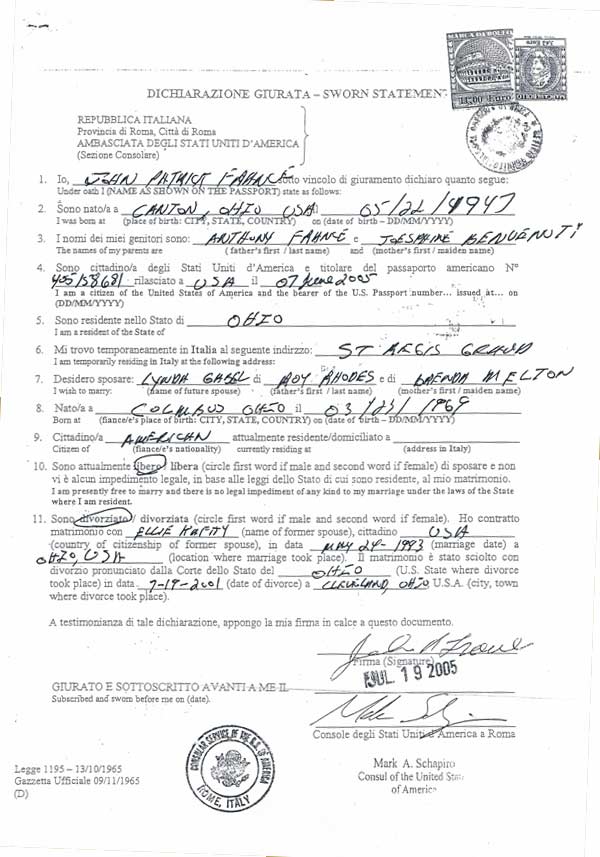 MARCA DA BOLLO
11,00 Euro
DICHIARAZIONE GIURATA – SWORN STATEMENT
REPUBBLICA ITALIANA
Provincia di Roma, Città di Roma
AMBASCIATA DEGLI STATI UNITI D'AMERICA
(Sezione Consolare)
1. Io, JOHN PATRICK FAHNÉ sotto vincolo di giuramento dichiaro quanto segue:
Under oath I (NAME AS SHOWN ON THE PASSPORT) state as follows:
2. Sono nato/a a CANTON, OHIO USA 05/22/1947
I was born at (place of birth: CITY, STATE, COUNTRY) on (date of birth – DD/MM/YYYY)
3. I nomi dei miei genitori sono: ANTHONY FAHNÉ e JOESPHINE BENVENUTI
The names of my parents are (father's first / last name) and (mother's first / maiden name)
4. Sono cittadino/a degli Stati Uniti d'America e titolare del passaporto americano N°
rilasciato a USA il 07 June 2005
I am a citizen of the United States of America and the bearer of the U.S. Passport number... issued at... on
(DD/MM/YYYY)
5. Sono residente nello Stato di OHIO
I am a resident of the State of
6. Mi trovo temporaneamente in Italia al seguente indirizzo: ST REGIS GRAND
I am temporarily residing in Italy at the following address:
7. Desidero sposare: LYNDA GABEL di ROY RHODES e di BRENDA MELTON
I wish to marry: (name of future spouse) (father's first / last name) (mother's first / maiden name)
8. Nato/a a COLUMBUS OHIO il 03/23/1969
Born at (fiance/e's place of birth: CITY, STATE, COUNTRY) on (date of birth – DD/MM/YYYY)
9. Cittadino/a AMERICAN attualmente residente/domiciliato a
Citizen of (fiance/e's nationality) currently residing at (address in Italy)
10. Sono attualmente libero/ libera (circle first word if male and second word if female) di sposare e non
vi è alcun impedimento legale, in base alle leggi dello Stato di cui sono residente, al mio matrimonio.
I am presently free to marry and there is no legal impediment of any kind to my marriage under the laws of the State
where I am resident.
11. Sono divorziato / divorziata (circle first word if male and second word if female). Ho contratto
matrimonio con ELLIE (name of former spouse), cittadino USA
(country of citizenship of former spouse), in data MAY 24- 1993 (marriage date) a
OHIO, USA (location where marriage took place). Il matrimonio è stato sciolto con
divorzio pronunciato dalla Corte dello Stato del OHIO (U.S. State where divorce
took place) in data 7-19-2001 (date of divorce) a CLEVELAND, OHIO U.S.A. (city, town
where divorce took place).
A testimonianza di tale dichiarazione, appongo la mia firma in calce a questo documento.
Firma (Signature)
JUL 19 2005
GIURATO E SOTTOSCRITTO AVANTI A ME IL
Subscribed and sworn before me on (date).
Console degli Stati Uniti d'America a Roma
CONSULAR SERVICE OF THE U.S. OF AMERICA
ROME, ITALY
Mark A. Schapiro
Consul of the United States
of America
Legge 1195 – 13/10/1965
Gazzetta Ufficiale 09/11/1965
(D)